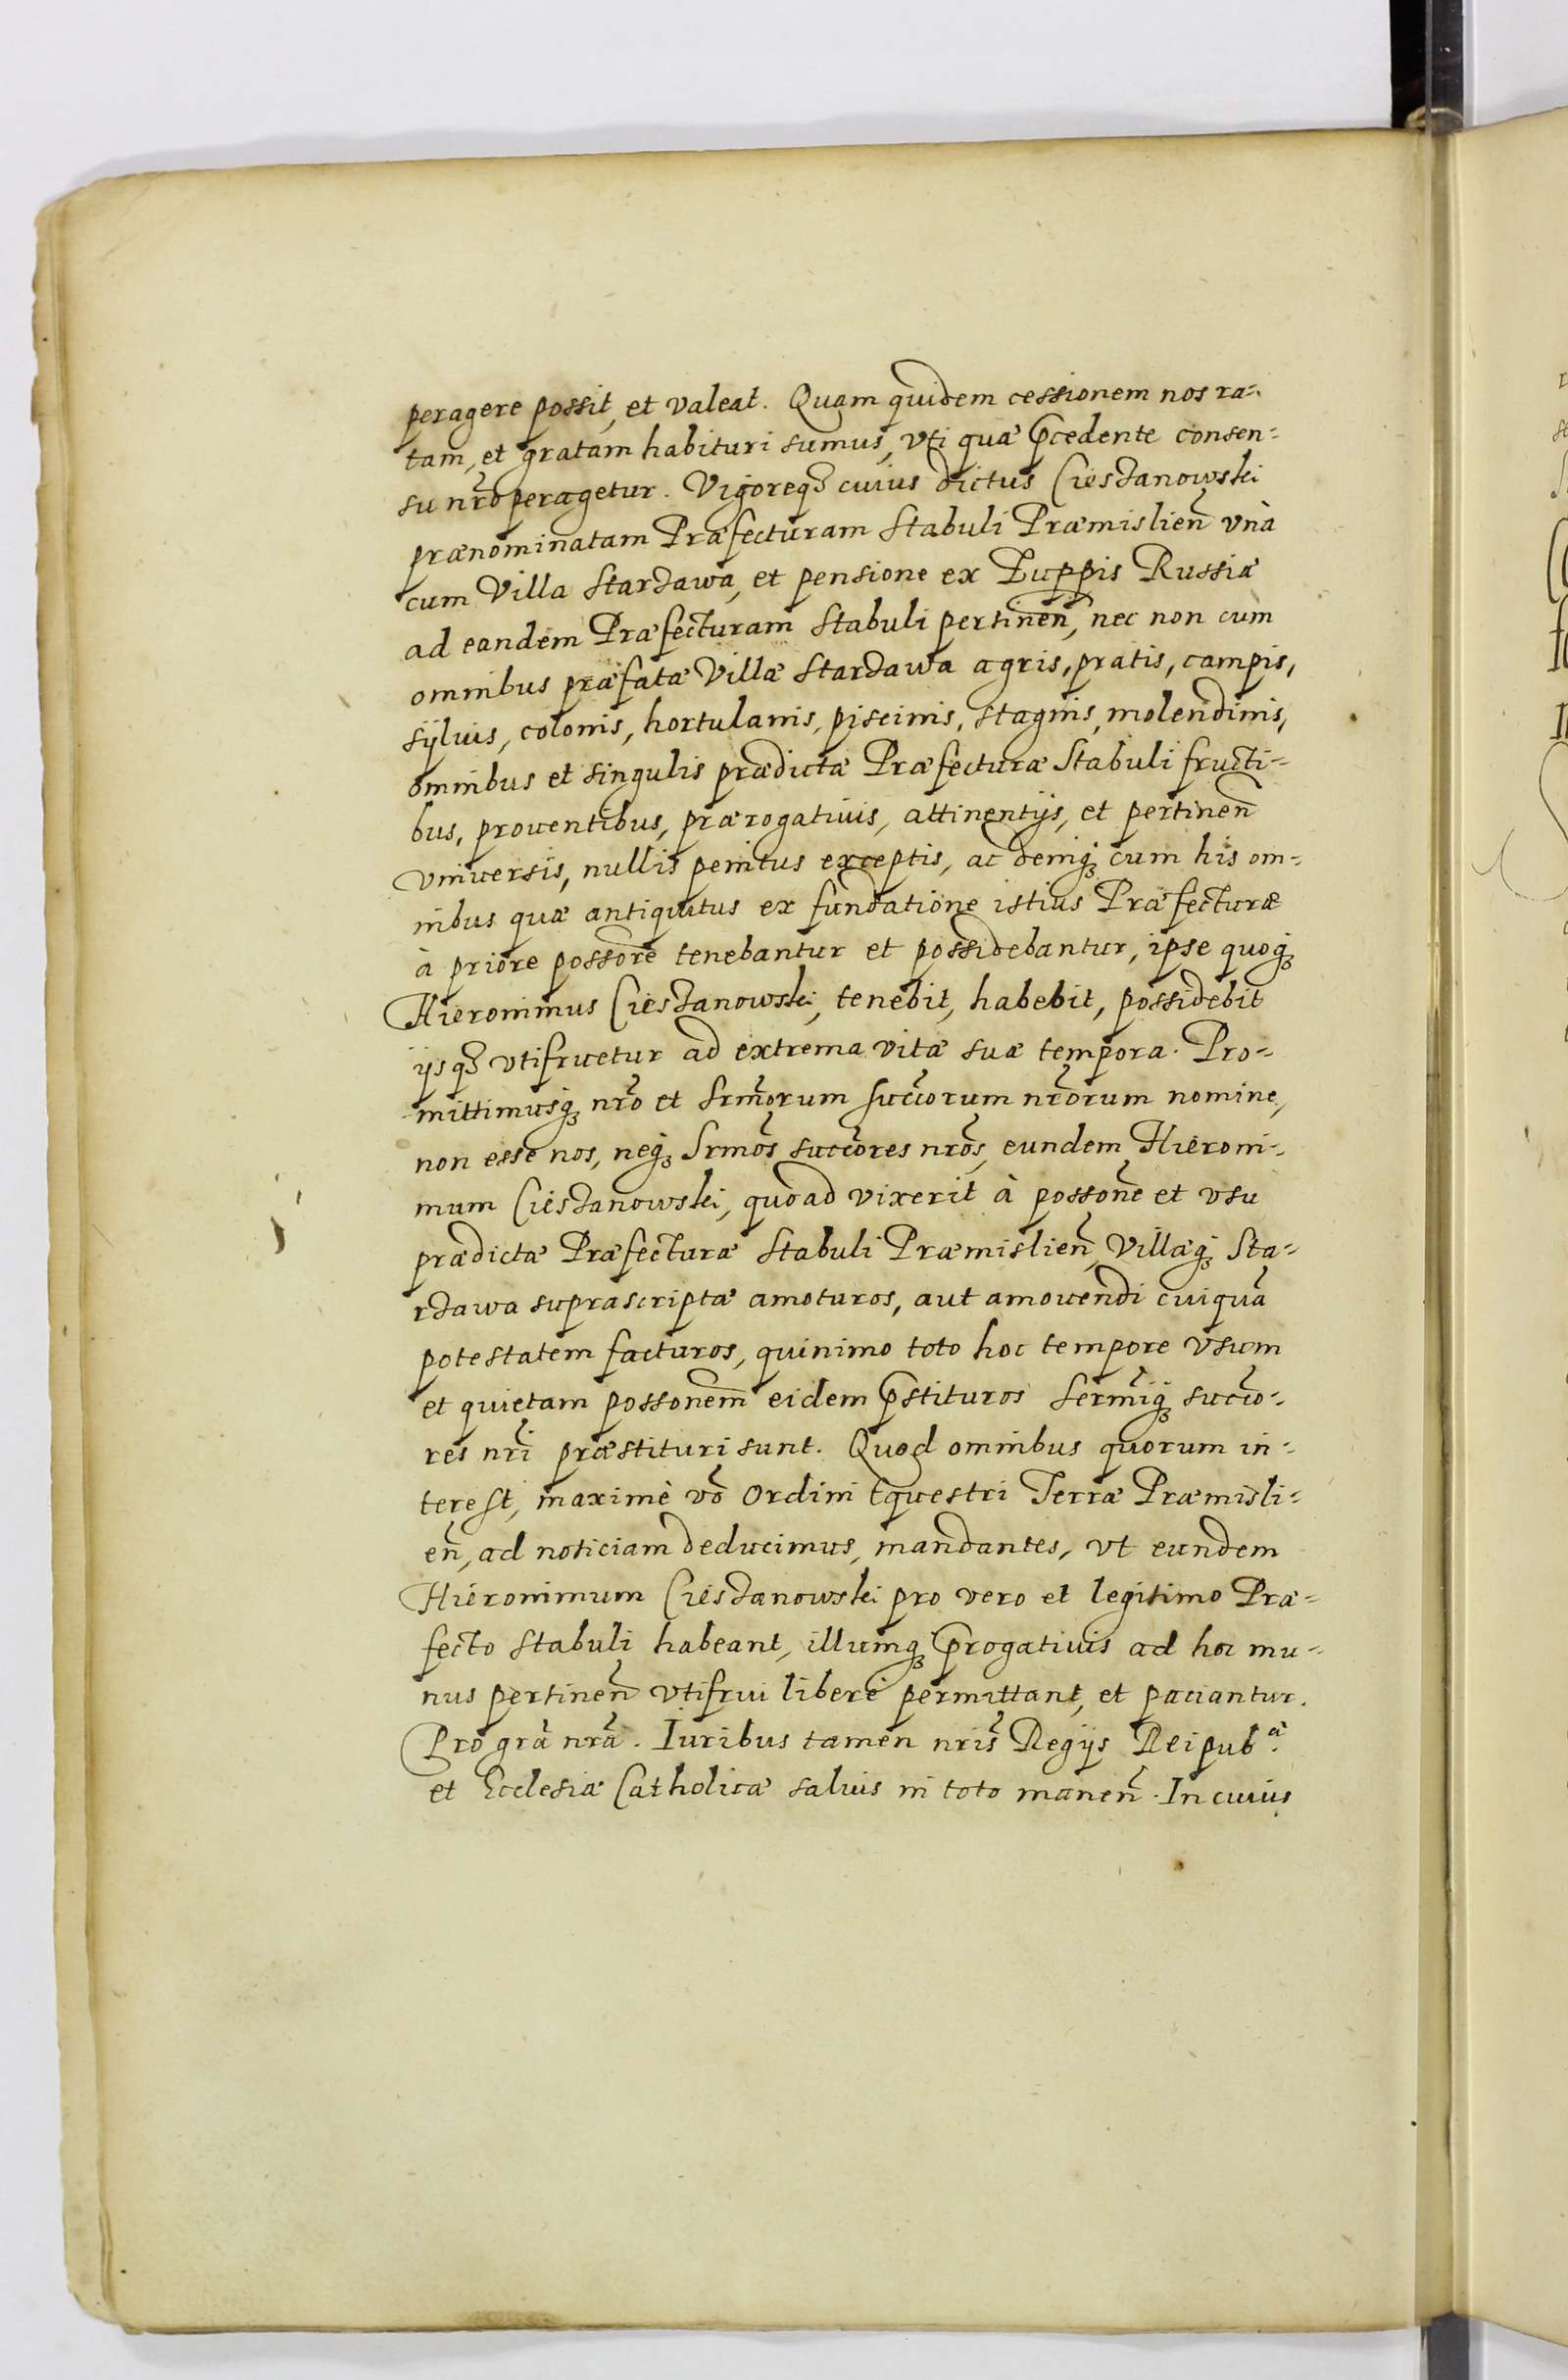 peragere possit, et valeat. Quam quidem cessionem nos ra-
tam, et gratam habituri sumus, vti quæ p̄cedente consen-
su nrõ peragetur. Vigoreqꝫ cuius dictus Ciesʒanowski
prænominatam Præfecturam Stabuli Præmislien̄ vnà
cum Villa Starʒawa, et pensione ex Zuppis Russiæ
ad eandem Præfecturam Stabuli pertinen̄, nec non cum
omnibus præfatæ Villæ Starʒawa agris, pratis, campis,
sÿluis, colonis, hortulanis, piscinis, stagnis, molendinis,
omnibus et singulis prædictæ Præfecturæ Stabuli fructi-
bus, prouentibus, prærogatiuis, attinentijs, et pertinen̄
vniuersis, nullis penitus exceptis, ac deniqꝫ cum his om-
nibus quæ antiquitus ex fundatione istius Præfecturæ
à priore possorē tenebantur et possidebantur, ipse quoqꝫ
Hieronimus Ciesʒanowski, tenebit, habebit, possidebit
ijsqꝫ vtifruetur ad extrema vitæ suæ tempora. Pro-
mittimusqꝫ nrõ et Srmõrum succõrum nrõrum nomine,
non esse nos, neqꝫ Srmõs succõres nrõs, eundem Hieroni-
mum Ciesʒanowski, quoad vixerit à possonē et vsu
prædictæ Præfecturæ Stabuli Præmislien̄, Villæqꝫ Sta-
rʒawa suprascriptæ amoturos, aut amouendi cuiquā
potestatem facturos, quinimo toto hoc tempore vsum
et quietam possonem̄ eidem p̄stituros Sermĩqꝫ succo̅-
res nrĩ præstituri sunt. Quod omnibus quorum in-
terest, maximè võ Ordini Equestri Terræ Præmisli-
en̄, ad noticiam deducimus, mandantes, vt eundem
Hieronimum Ciesʒanowski pro vero et legitimo Præ-
fecto Stabuli habeant, illumqꝫ p̄rogatiuis ad hoc mu-
nus pertinen̄ vtifrui liberè permittant, et paciantur.
Pro grã nrã. Iuribus tamen nrĩs Regijs Reipub.ᵃ
et Ecclesiæ Catholicæ saluis in toto manen̄. In cuius